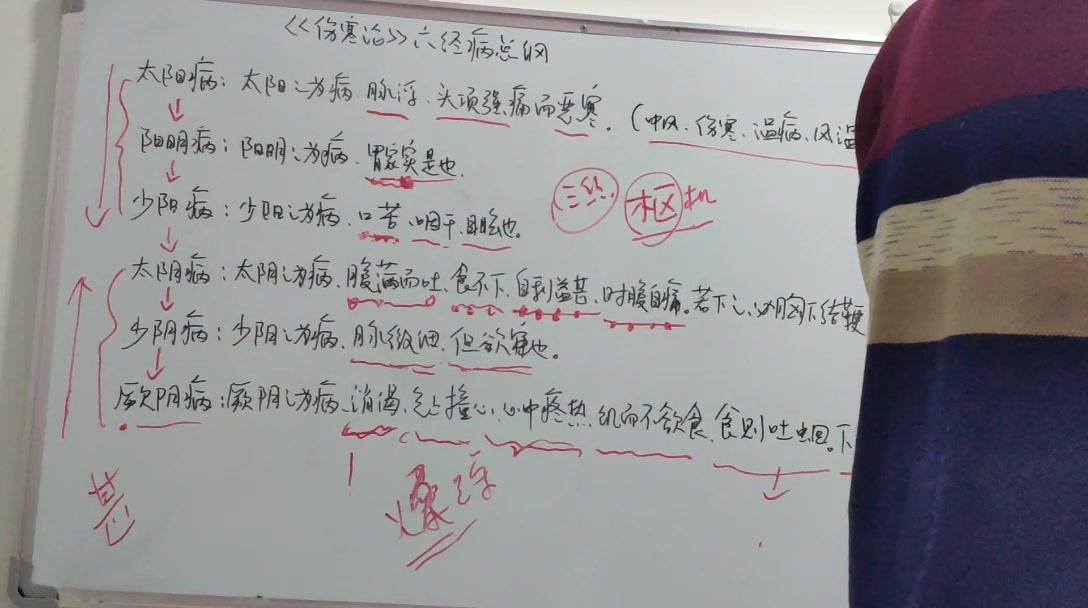 《《伤寒论》》六经病总纲
太阳病：太阳之为病、脉浮、头项强痛而恶寒。（中风、伤寒、温病、风温
阳明病：阳明之为病、胃家实是也.
少阳病：少阳之为病、口苦、咽干、目眩也。
三终 枢机
太阴病：太阴之为病、腹满而吐、食不下、自利益甚、时腹自痛。若下之、必胸下结鞕
少阴病：少阴之为病、脉微细、但欲寐也。
厥阴病：厥阴之为病、消渴、气上撞心、心中疼热、饥而不欲食、食则吐蛔。下